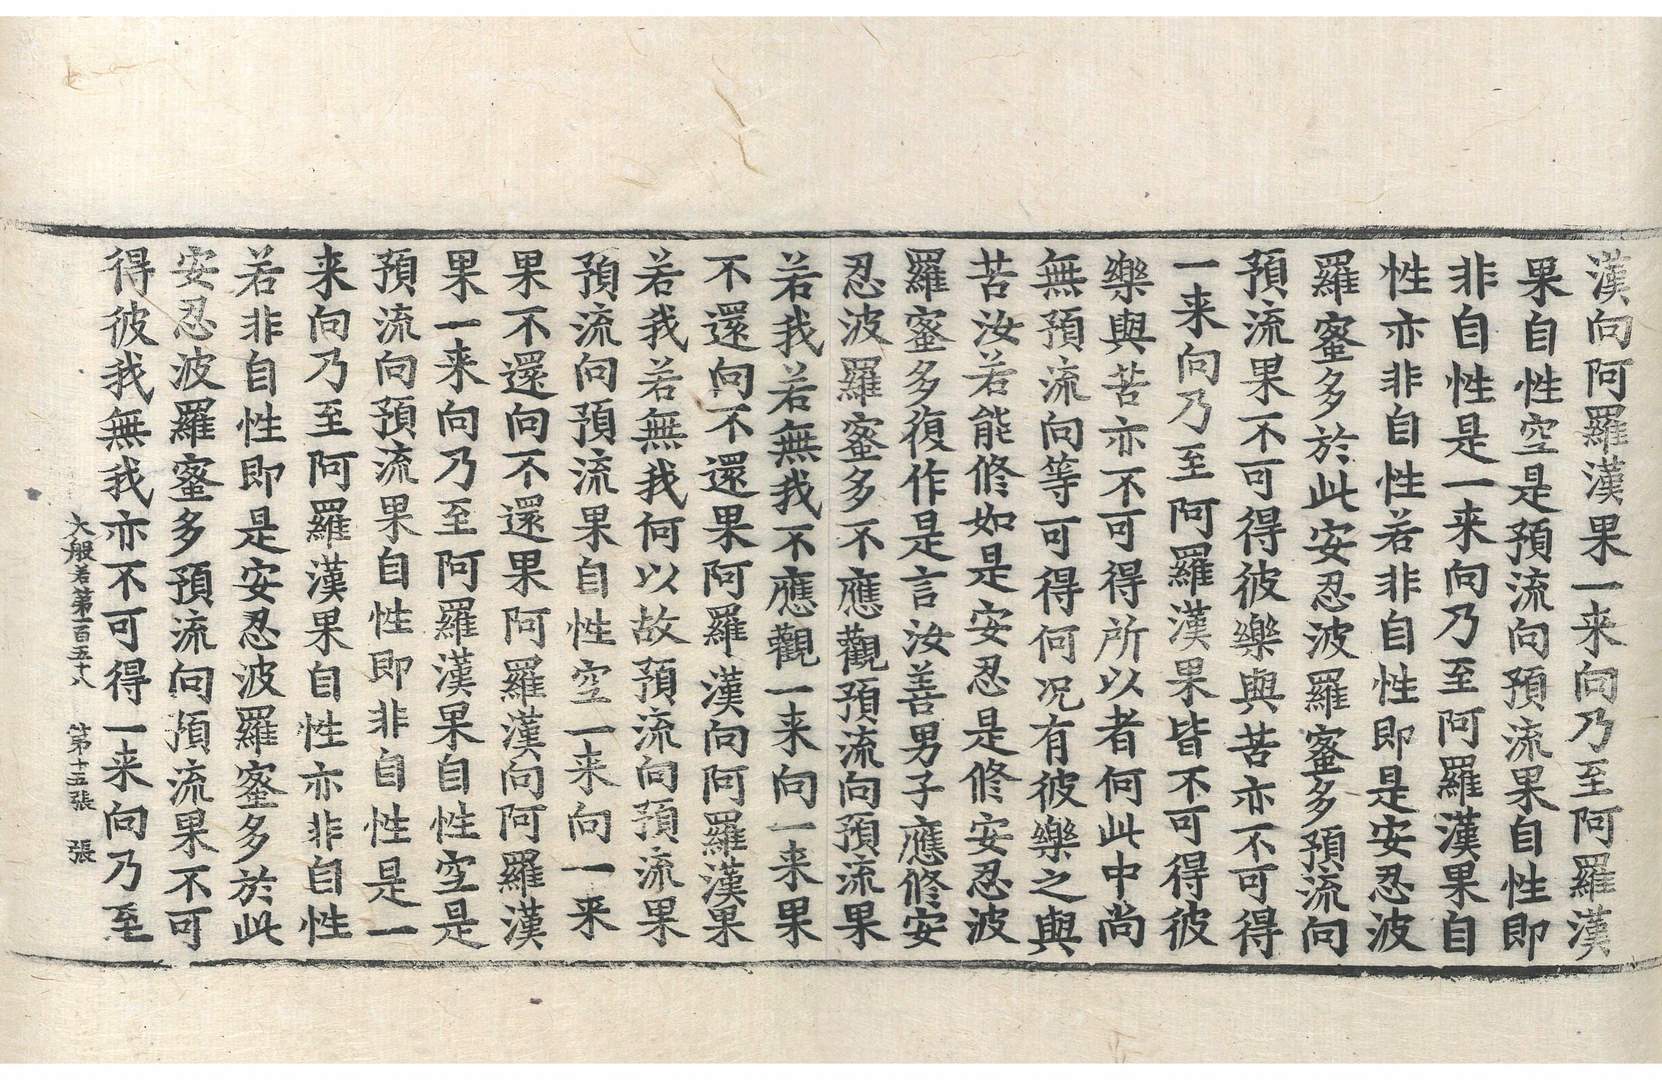 漢向阿羅漢果一来向乃至阿羅漢
果自性空是預流向預流果自性即
非自性是一来向乃至阿羅漢果自
性亦非自性若非自性即是安忍波
羅蜜多於此安忍波羅蜜多預流向
預流果不可得彼樂與苦亦不可得
一来向乃至阿羅漢果皆不可得彼
樂與苦亦不可得所以者何此中尚
無預流向等可得何况有彼樂之與
苦汝若能修如是安忍是修安忍波
羅蜜多復作是言汝善男子應修安
忍波羅蜜多不應觀預流向預流果
若我若無我不應觀一来向一来果
不還向不還果阿羅漢向阿羅漢果
若我若無我何以故預流向預流果
預流向預流果自性空一来向一来
果不還向不還果阿羅漢向阿羅漢
果一来向乃至阿羅漢果自性空是
預流向預流果自性即非自性是一
来向乃至阿羅漢果自性亦非自性
若非自性即是安忍波羅蜜多於此
安忍波羅蜜多預流向預流果不可
得彼我無我亦不可得一来向乃至
大般若第一百五十八 第十五張 張